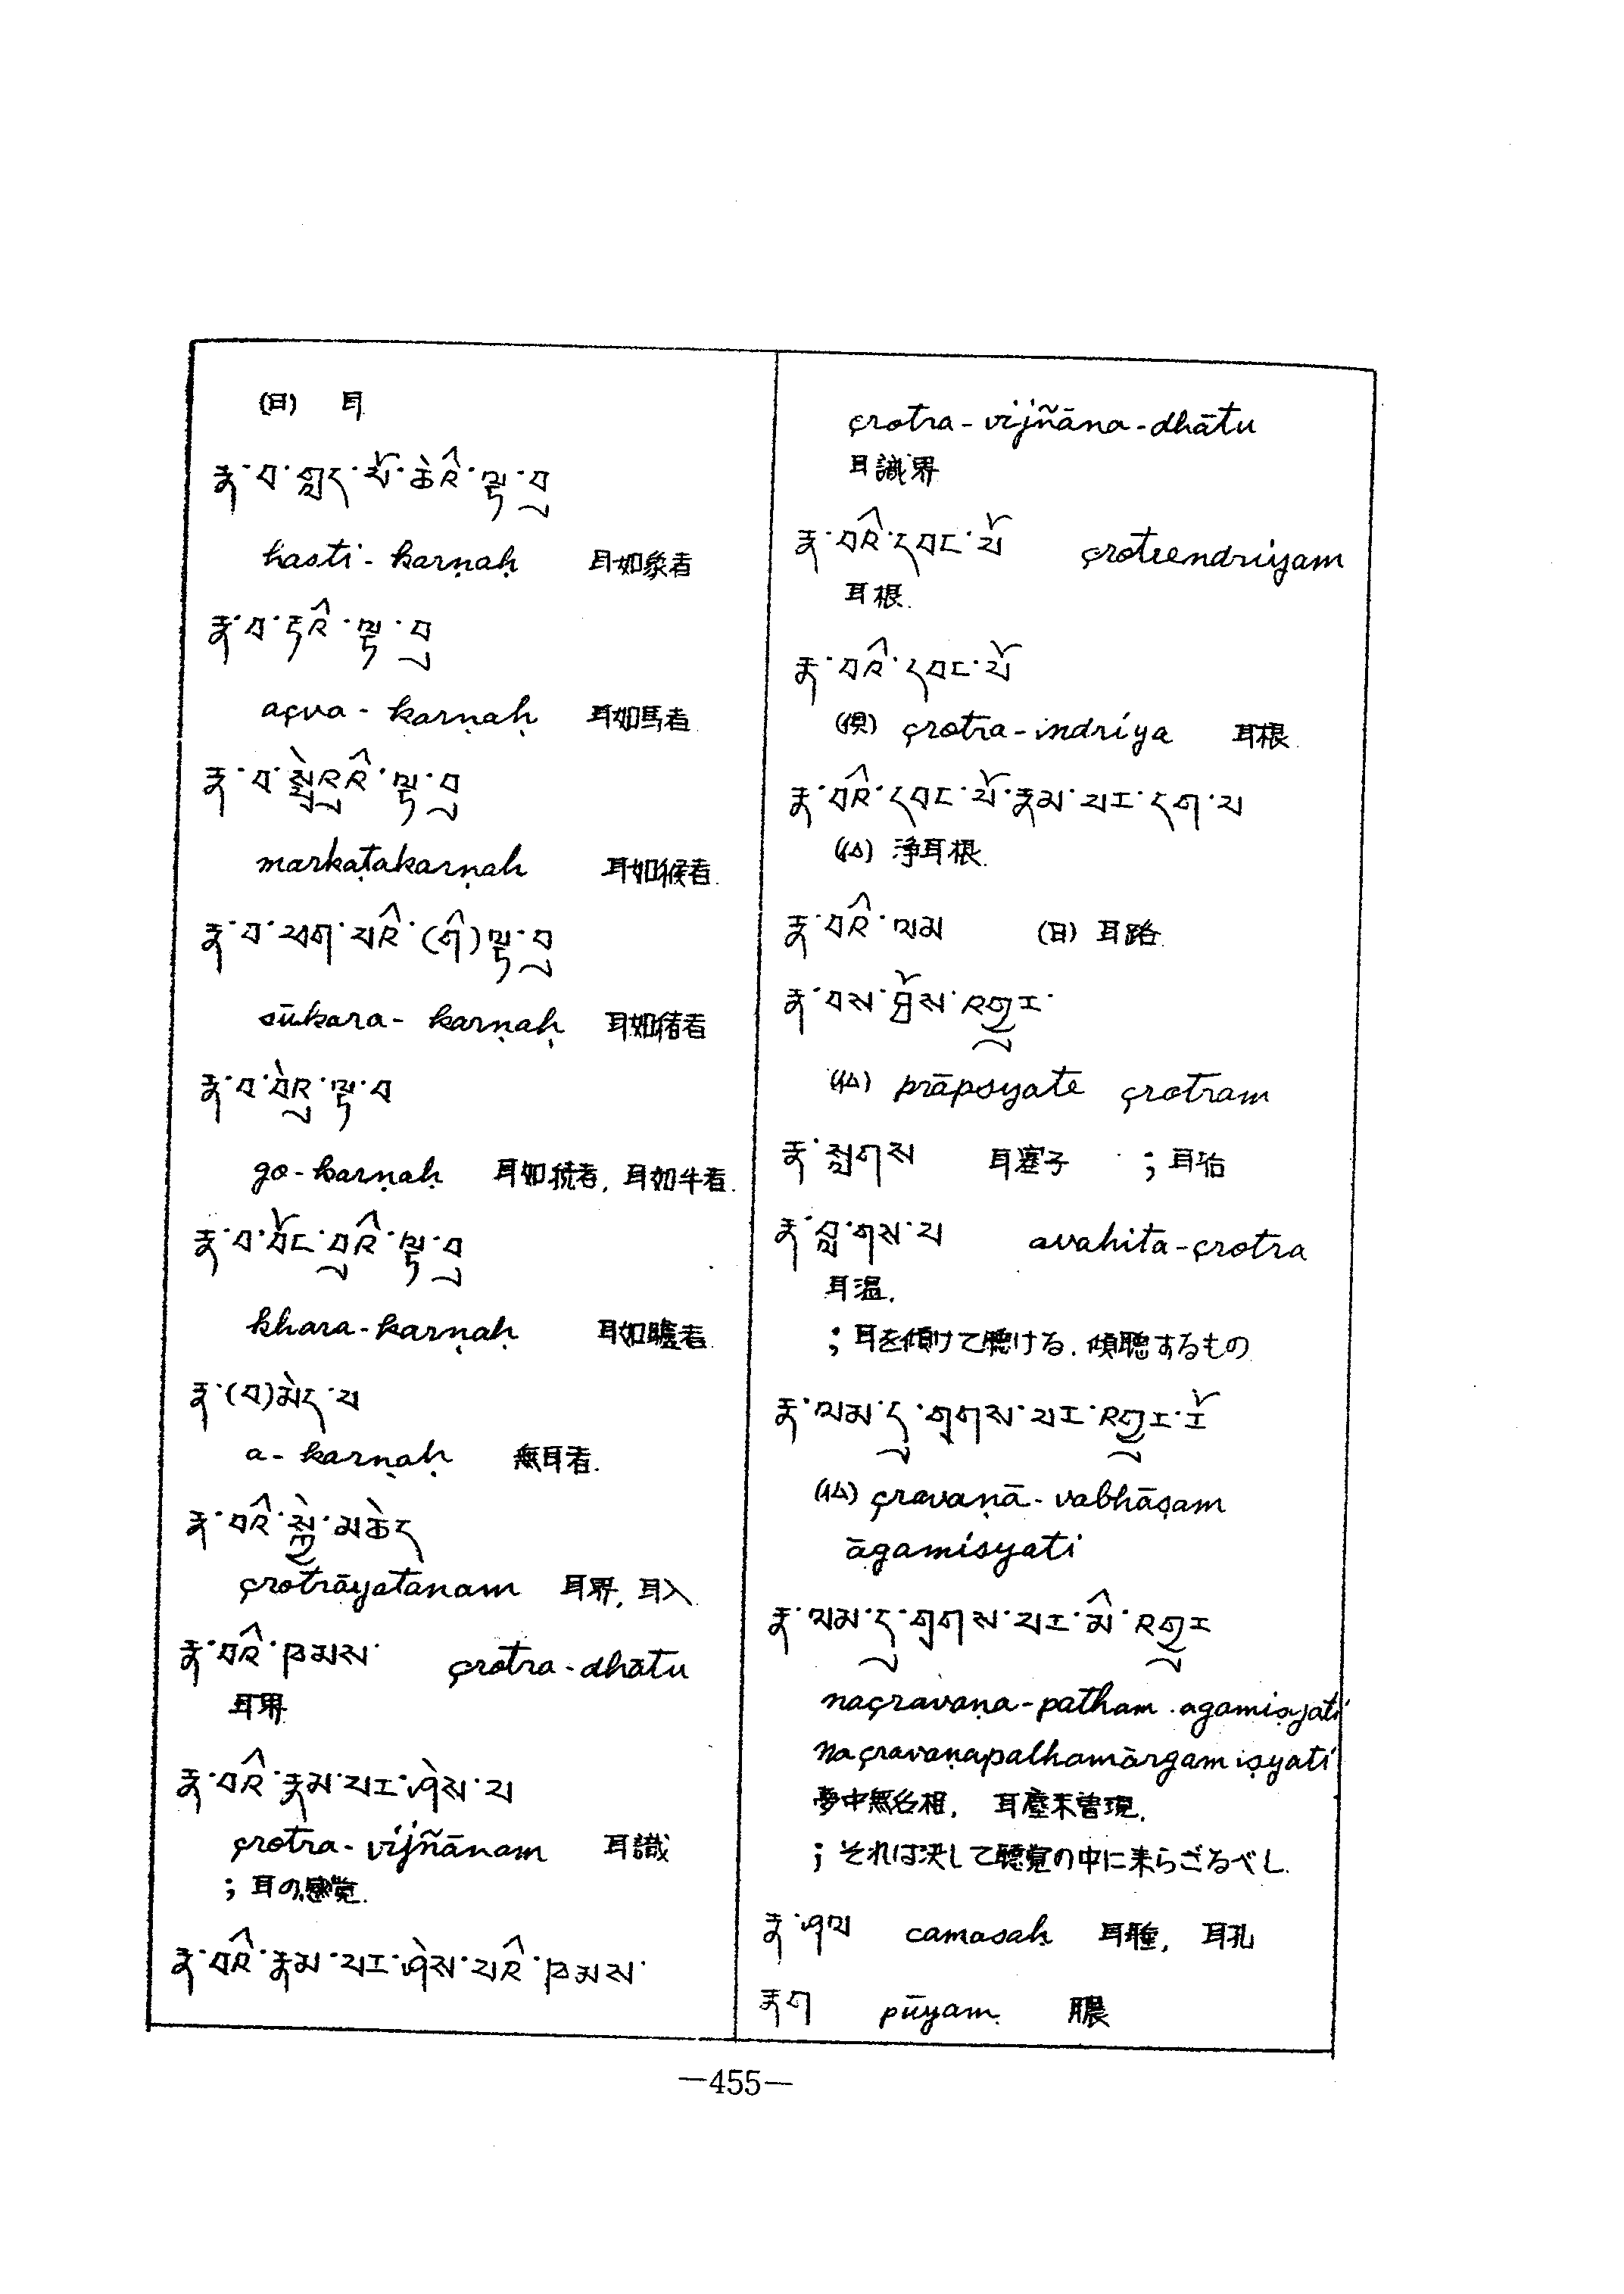 (日) 耳
རྣ་བ་གླང་པོ་ཆེའི་ལྟ་བུ
hasti - karṇaḥ 耳如象者
རྣ་བ་རྟའི་ལྟ་བུ
açva - karṇaḥ 耳如馬者
རྣ་བ་སྤྲེའུའི་ལྟ་བུ
markaṭakarṇaḥ 耳如猴者.
རྣ་བ་ཕག་པའི་(གི)ལྟ་བུ
sūkara - karṇaḥ 耳如猪者
རྣ་བ་བེའུ་ལྟ་བ
go - karṇaḥ 耳如犢者, 耳如牛者.
རྣ་བ་བོང་བུའི་ལྟ་བུ
khara - karṇaḥ 耳如驢者.
རྣ་(བ)མེད་པ
a - karṇaḥ 無耳者.
རྣ་བའི་སྐྱེ་མཆེད
çrotrāyatanam 耳界, 耳入.
རྣ་བའི་ཁམས་ çrotra - dhātu
耳界
རྣ་བའི་རྣམ་པར་ཤེས་པ
çrotra - vijñānam 耳識
; 耳の感覚.
རྣ་བའི་རྣམ་པར་ཤེས་པའི་ཁམས་
çrotra - vijñāna - dhātu
耳識界
རྣ་བའི་དབང་པོ çrotrendriyam
耳根.
རྣ་བའི་དབང་པོ
(倶) çrotra - indriya 耳根.
རྣ་བའི་དབང་པོ་རྣམ་པར་དག་པ
(仏) 浄耳根.
རྣ་བའི་ལམ (日) 耳路.
རྣ་བས་ཐོས་འགྱུར་
(仏) prāpsyate çrotram
རྣ་སླགས 耳塞子 ; 耳
རྣ་བླ་གས་པ avahita - çrotra
耳温.
; 耳を傾けて聴ける. 傾聴するもの
རྣ་ལམ་དུ་གྲགས་པར་འགྱུར་རོ
(仏) çravaṇā - vabhāṣam
āgamisyati
རྣ་ལམ་དུ་གྲགས་པར་མི་འགྱུར
naçravaṇa - patham . agamiṣyati
naçravaṇapathamārgam iṣyati
夢中無名相, 耳塵未曽現.
; それは決して聴覚の中に来らざるべし.
རྣ་ཤལ camasaḥ 耳腫, 耳孔
རྣག pūyam. 膿
—455—